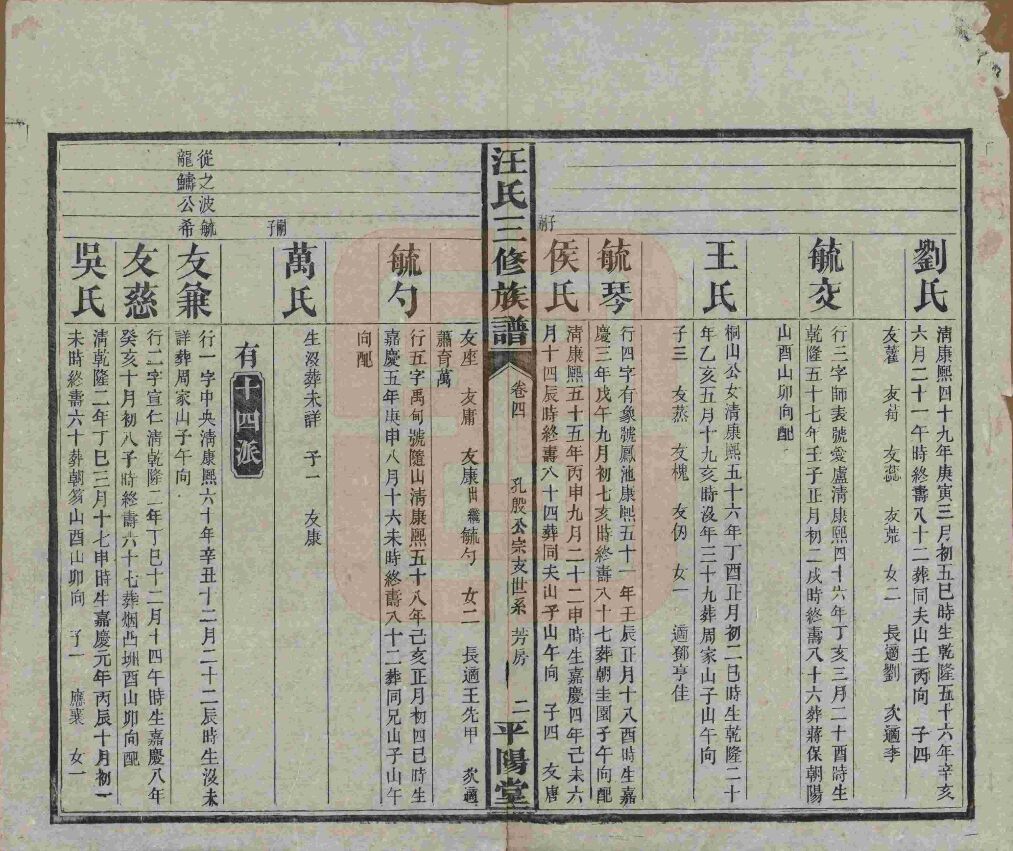 劉氏
淸康熙四十九年庚寅三月初五巳時生乾隆五十六年辛亥
六月二十一午時終壽八十二葬同夫山壬丙向 子四
友蘿 友荀 友蕊 友荒 女二 長適劉 次適李
毓文
行三字師表號愛盧淸康熙四十六年丁亥三月二十酉時生
乾隆五十七年壬子正月初二戌時終壽八十六葬蔣保朝陽
山酉山卯向配
王氏
桐山公女淸康熙五十六年丁酉正月初二巳時生乾隆二十
年乙亥五月十九亥時沒年三十九葬周家山子山午向
子三 友蒸 友槐 友仍 女一 適鄧亨佳
毓琴
行四字有象號鳳池康熙五十一年壬辰正月十八酉時生嘉
慶三年戊午九月初七亥時終壽八十七葬朝圭園子午向配
子嗣
侯氏
淸康熙五十五年丙申九月二十二申時生嘉慶四年己未六
月十四辰時終壽八十四葬同夫山子山午向 子四 友唐
汪氏三修族譜 卷四 孔殷公宗支世系 芳房 二 平陽堂
友座 友庸 友康出繼毓勺 女二 長適王先甲 次適
蕭育萬
毓勺
行五字禹甸號隨山淸康熙五十八年己亥正月初四巳時生
嘉慶五年庚申八月十六未時終壽八十二葬同兄山子山午
向配
嗣子
萬氏
生沒葬未詳 子一 友康
有十四派
從之波毓
龍鱗公希
友兼
行一字中央淸康熙六十年辛丑十二月二十二辰時生沒未
詳葬周家山子午向
友慈
行二字宣仁淸乾隆二年丁巳十二月十四午時生嘉慶八年
癸亥十月初八子時終壽六十七葬烟凸坳酉山卯向配
吳氏
淸乾隆二年丁巳三月十七申時生嘉慶元年丙辰十月初一
未時終壽六十葬朝笏山酉山卯向 子一 應襄 女一